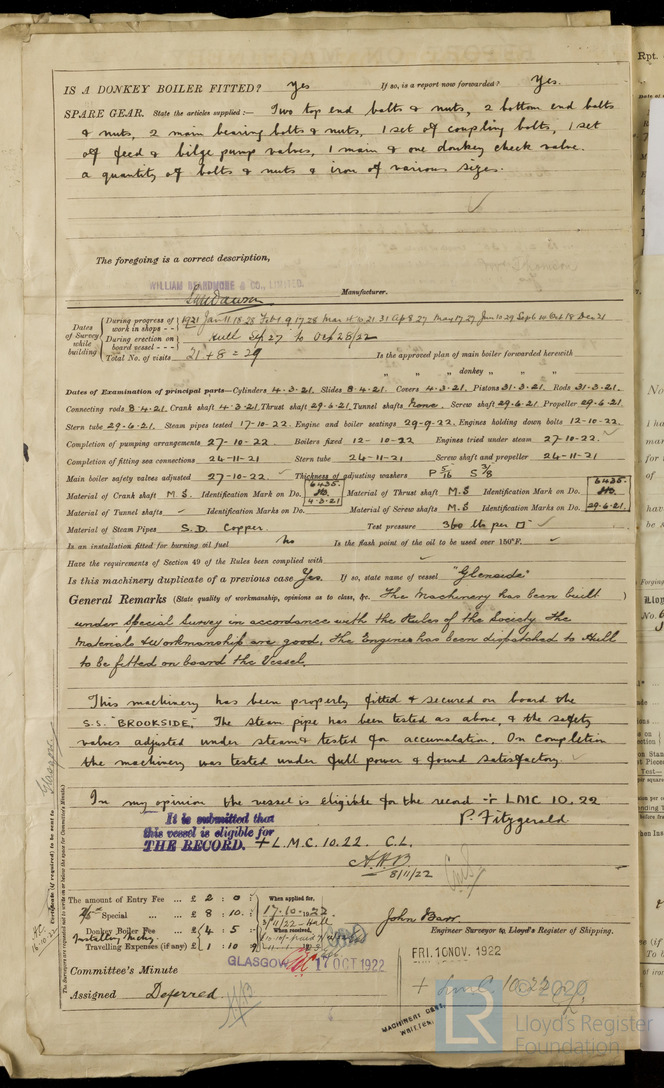 IS A DONKEY BOILER FITTED? Yes If so, is a report now forwarded? Yes.
SPARE GEAR. State the articles supplied:— Two top end bolts & nuts, 2 bottom end bolts
& nuts, 2 main bearing bolts & nuts, 1 set of coupling bolts, 1 set
of feed & bilge pump valves, 1 main & one donkey check valve.
a quantity of bolts & nuts & iron of various sizes.
The foregoing is a correct description,
WILLIAM BEARDMORE & CO., LIMITED.
Manufacturer.
Dates of Survey while building
During progress of work in shops - - 1921 Jan 11 18 28 Feb 1 9 17 28 Mar 21 31 Ap 8 27 May 17 27 Jun 10 29 Sep 6 10 Oct 18 Dec 21
During erection on board vessel - - - Hull Sep 27 to Oct 28/22
Total No. of visits 21 + 8 = 29
Is the approved plan of main boiler forwarded herewith
" " " donkey " " "
Dates of Examination of principal parts—Cylinders 4-3-21. Slides 8-4-21. Covers 4-3-21. Pistons 31-3-21. Rods 31-3-21.
Connecting rods 8-4-21. Crank shaft 4-3-21. Thrust shaft 29-6-21. Tunnel shafts None. Screw shaft 29-6-21. Propeller 29-6-21.
Stern tube 29-6-21. Steam pipes tested 17-10-22. Engine and boiler seatings 29-9-22. Engines holding down bolts 12-10-22.
Completion of pumping arrangements 27-10-22. Boilers fixed 12-10-22 Engines tried under steam 27-10-22.
Completion of fitting sea connections 24-11-21 Stern tube 24-11-21 Screw shaft and propeller 24-11-21
Main boiler safety valves adjusted 27-10-22. Thickness of adjusting washers P 5/16 S 3/8
Material of Crank shaft M.S. Identification Mark on Do. 6435. 4-3-21 Material of Thrust shaft M.S Identification Mark on Do. 6435. 29-6-21.
Material of Tunnel shafts Identification Marks on Do. Material of Screw shafts M.S Identification Marks on Do.
Material of Steam Pipes S.D. Copper. Test pressure 360 lbs per □"
Is an installation fitted for burning oil fuel No Is the flash point of the oil to be used over 150°F.
Have the requirements of Section 49 of the Rules been complied with
Is this machinery duplicate of a previous case Yes. If so, state name of vessel "Glenside"
General Remarks (State quality of workmanship, opinions as to class, &c. The Machinery has been built )
under Special Survey in accordance with the Rules of the Society. The
Materials & Workmanship are good. The Engines has been dispatched to Hull
to be fitted on board the Vessel.
This machinery has been properly fitted & secured on board the
S.S. "BROOKSIDE". The steam pipe has been tested as above, & the safety
valves adjusted under steam & tested for accumulation. On completion
the machinery was tested under full power & found satisfactory.
In my opinion the vessel is eligible for the record + LMC 10.22
P. Fitzgerald
It is submitted that
this vessel is eligible for
THE RECORD. + L.M.C. 10.22. C.L.
8/11/22
The amount of Entry Fee ... £ 2 : 0 : When applied for,
Special ... £ 8 : 10. : 17.10.1922
3/11/22 - Hull
Donkey Boiler Fee ... £ 4 : 5 : When received,
Travelling Expenses (if any) £ 1 : 10
John Barr
Engineer Surveyor to Lloyd's Register of Shipping.
GLASGOW 17 OCT 1922
FRI. 10 NOV. 1922
Committee's Minute
Assigned Deferred
+ LMC 10.22
MACHINERY CERT. WRITTEN.
Certificate (if required) to be sent to Glasgow
The Surveyors are requested not to write on or below the space for Committee's Minute.
© 2020
Lloyd's Register
Foundation
LR
Rpt.